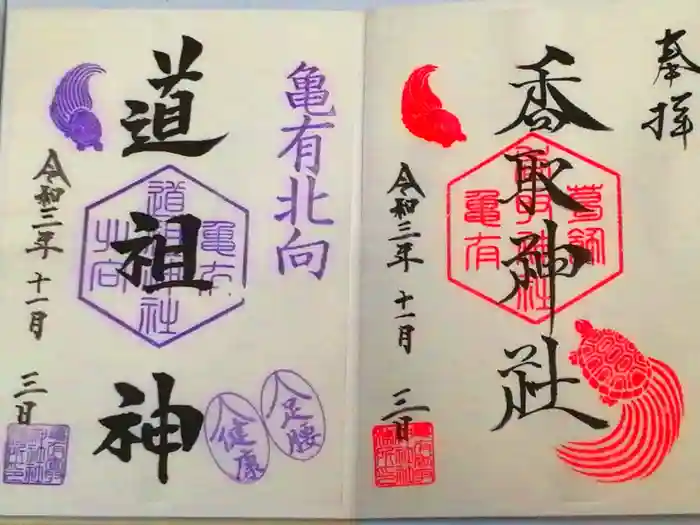 奉拝
香取神社
葛飾
香取神社
亀有
令和三年十一月三日
亀有北向
道祖神
亀有
道祖神社
北向
足腰
健康
令和三年十一月三日